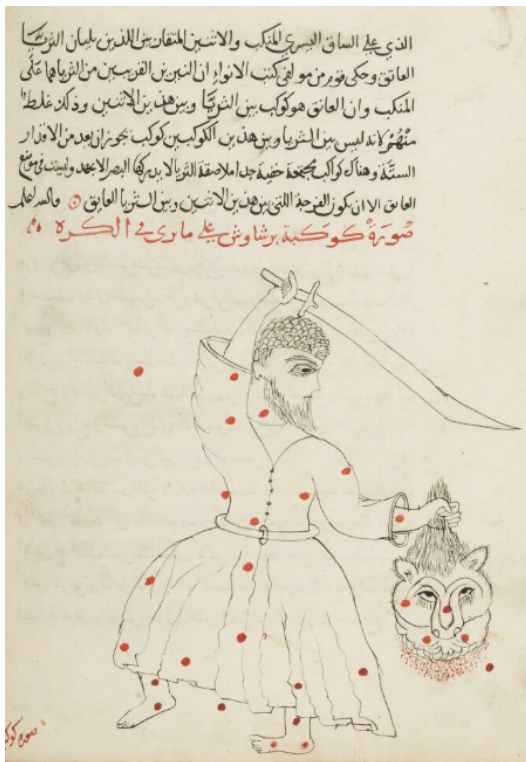 الذي على الساق اليسرى المنكب والاثنين المتقاربين اللذين يليان الثريا
العاتق وحكى قوم من مولفى كتب الانواء ان النيرين القريبين من الثريا هما على
المنكب وان العاتق هو كوكب بين الثريا وبين هذين الاثنين وذلك غلط
منهم لانه ليس بين الثريا وبين هذين الكوكبين كوكب يجوز ان يعد من الاقدار
الستة وهناك كواكب مجتمعة خفية جدا ملاصقة الثريا لا يدركها البصر الا بجهد وليست في موضع
العاتق الا ان يكون الفرجة التي بين هذين الاثنين وبين الثريا العاتق والله اعلم
صورة كوكبة برشاوش على ما يرى في الكره
صورة كوكبة